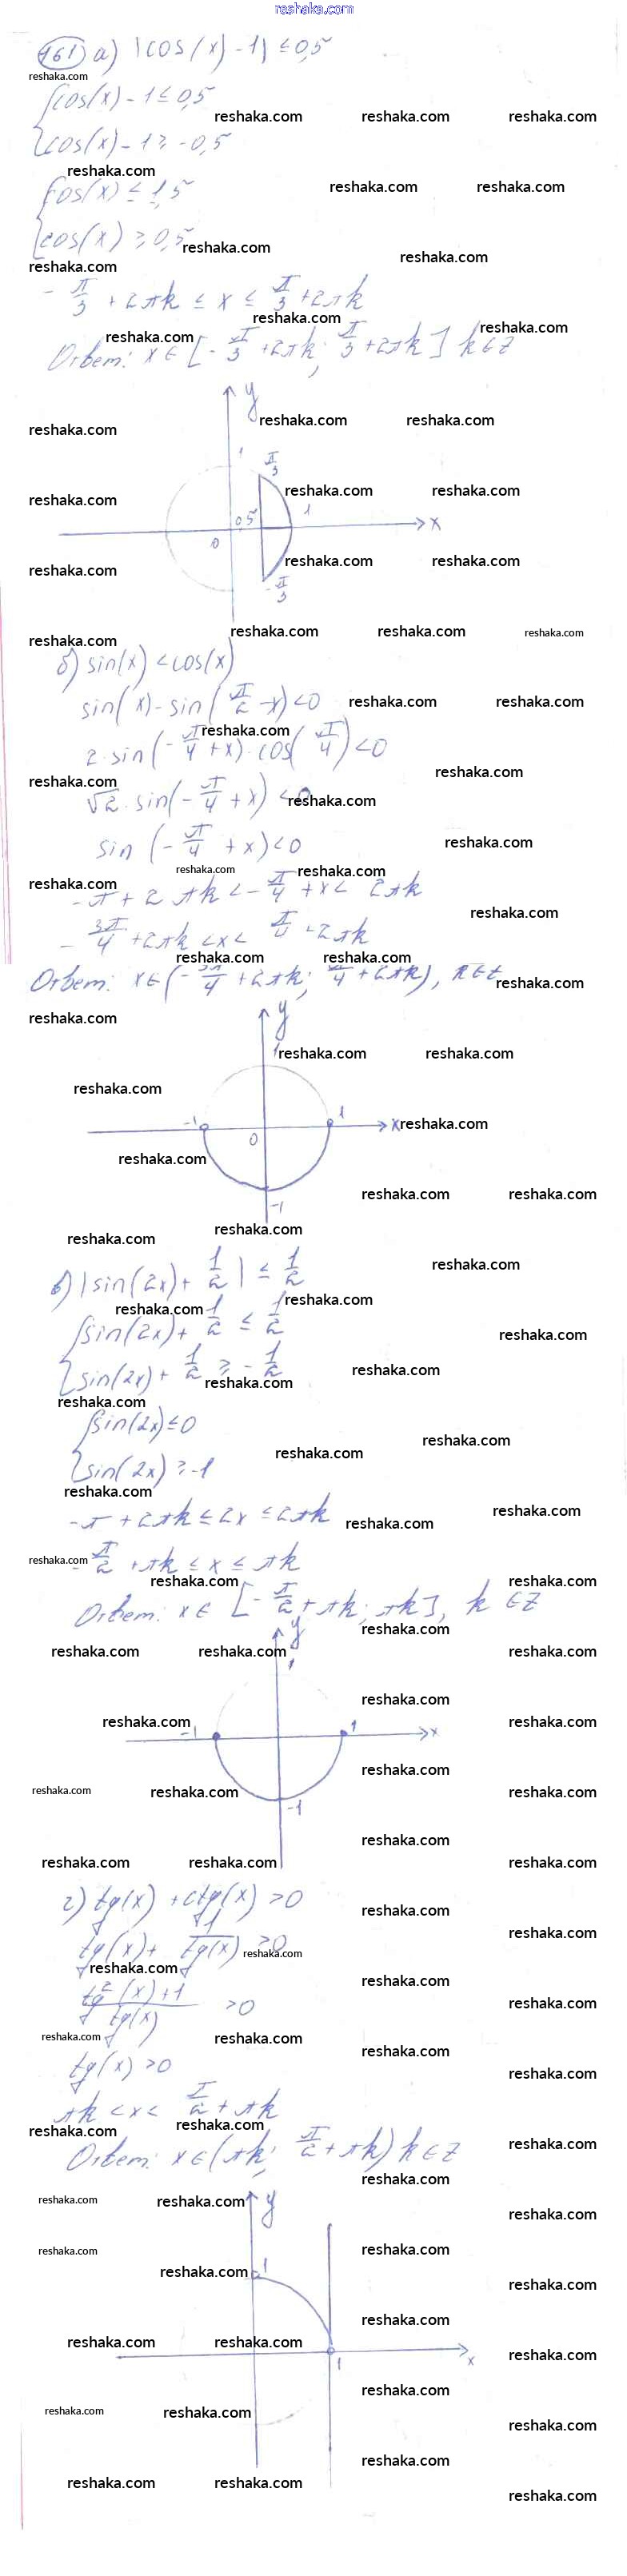 reshaka.com
161) а) |cos(x) - 1| ≤ 0,5
{cos(x) - 1 ≤ 0,5
{cos(x) - 1 ≥ -0,5
{cos(x) ≤ 1,5
{cos(x) ≥ 0,5
-π/3 + 2πk ≤ x ≤ π/3 + 2πk
Ответ: x ∈ [-π/3 + 2πk; π/3 + 2πk] k ∈ Z
y
1
π/3
0,5
1
x
0
-π/3
б) sin(x) < cos(x)
sin(x) - sin(π/2 - x) < 0
2·sin(-π/4 + x)·cos(π/4) < 0
√2·sin(-π/4 + x) < 0
sin(-π/4 + x) < 0
-π + 2πk < -π/4 + x < 2πk
-3π/4 + 2πk < x < π/4 + 2πk
Ответ: x ∈ (-3π/4 + 2πk; π/4 + 2πk), k ∈ Z
y
1
-1
0
1
x
-1
в) |sin(2x) + 1/2| ≤ 1/2
{sin(2x) + 1/2 ≤ 1/2
{sin(2x) + 1/2 ≥ -1/2
{sin(2x) ≤ 0
{sin(2x) ≥ -1
-π + 2πk ≤ 2x ≤ 2πk
-π/2 + πk ≤ x ≤ πk
Ответ: x ∈ [-π/2 + πk; πk], k ∈ Z
y
1
-1
1
x
-1
г) tg(x) + ctg(x) > 0
tg(x) + 1/tg(x) > 0
tg²(x)+1/tg(x) > 0
tg(x) > 0
πk < x < π/2 + πk
Ответ: x ∈ (πk; π/2 + πk) k ∈ Z
y
1
1
x